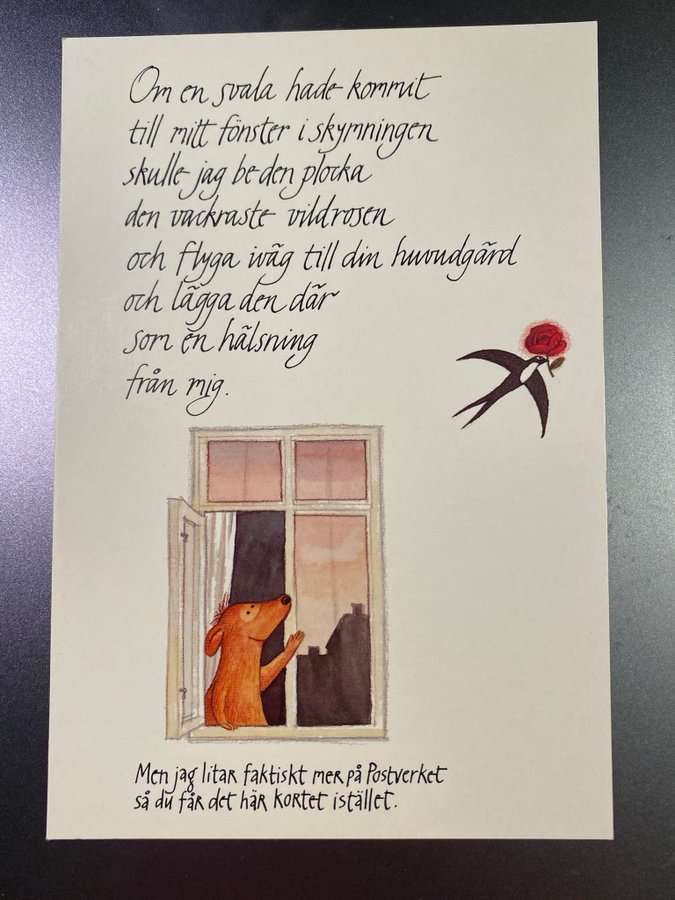 Om en svala hade kommit
till mitt fönster i skymningen
skulle jag be den plocka
den vackraste vildrosen
och flyga iväg till din huvudgärd
och lägga den där
som en hälsning
från mig.
Men jag litar faktiskt mer på Postverket
så du får det här kortet istället.